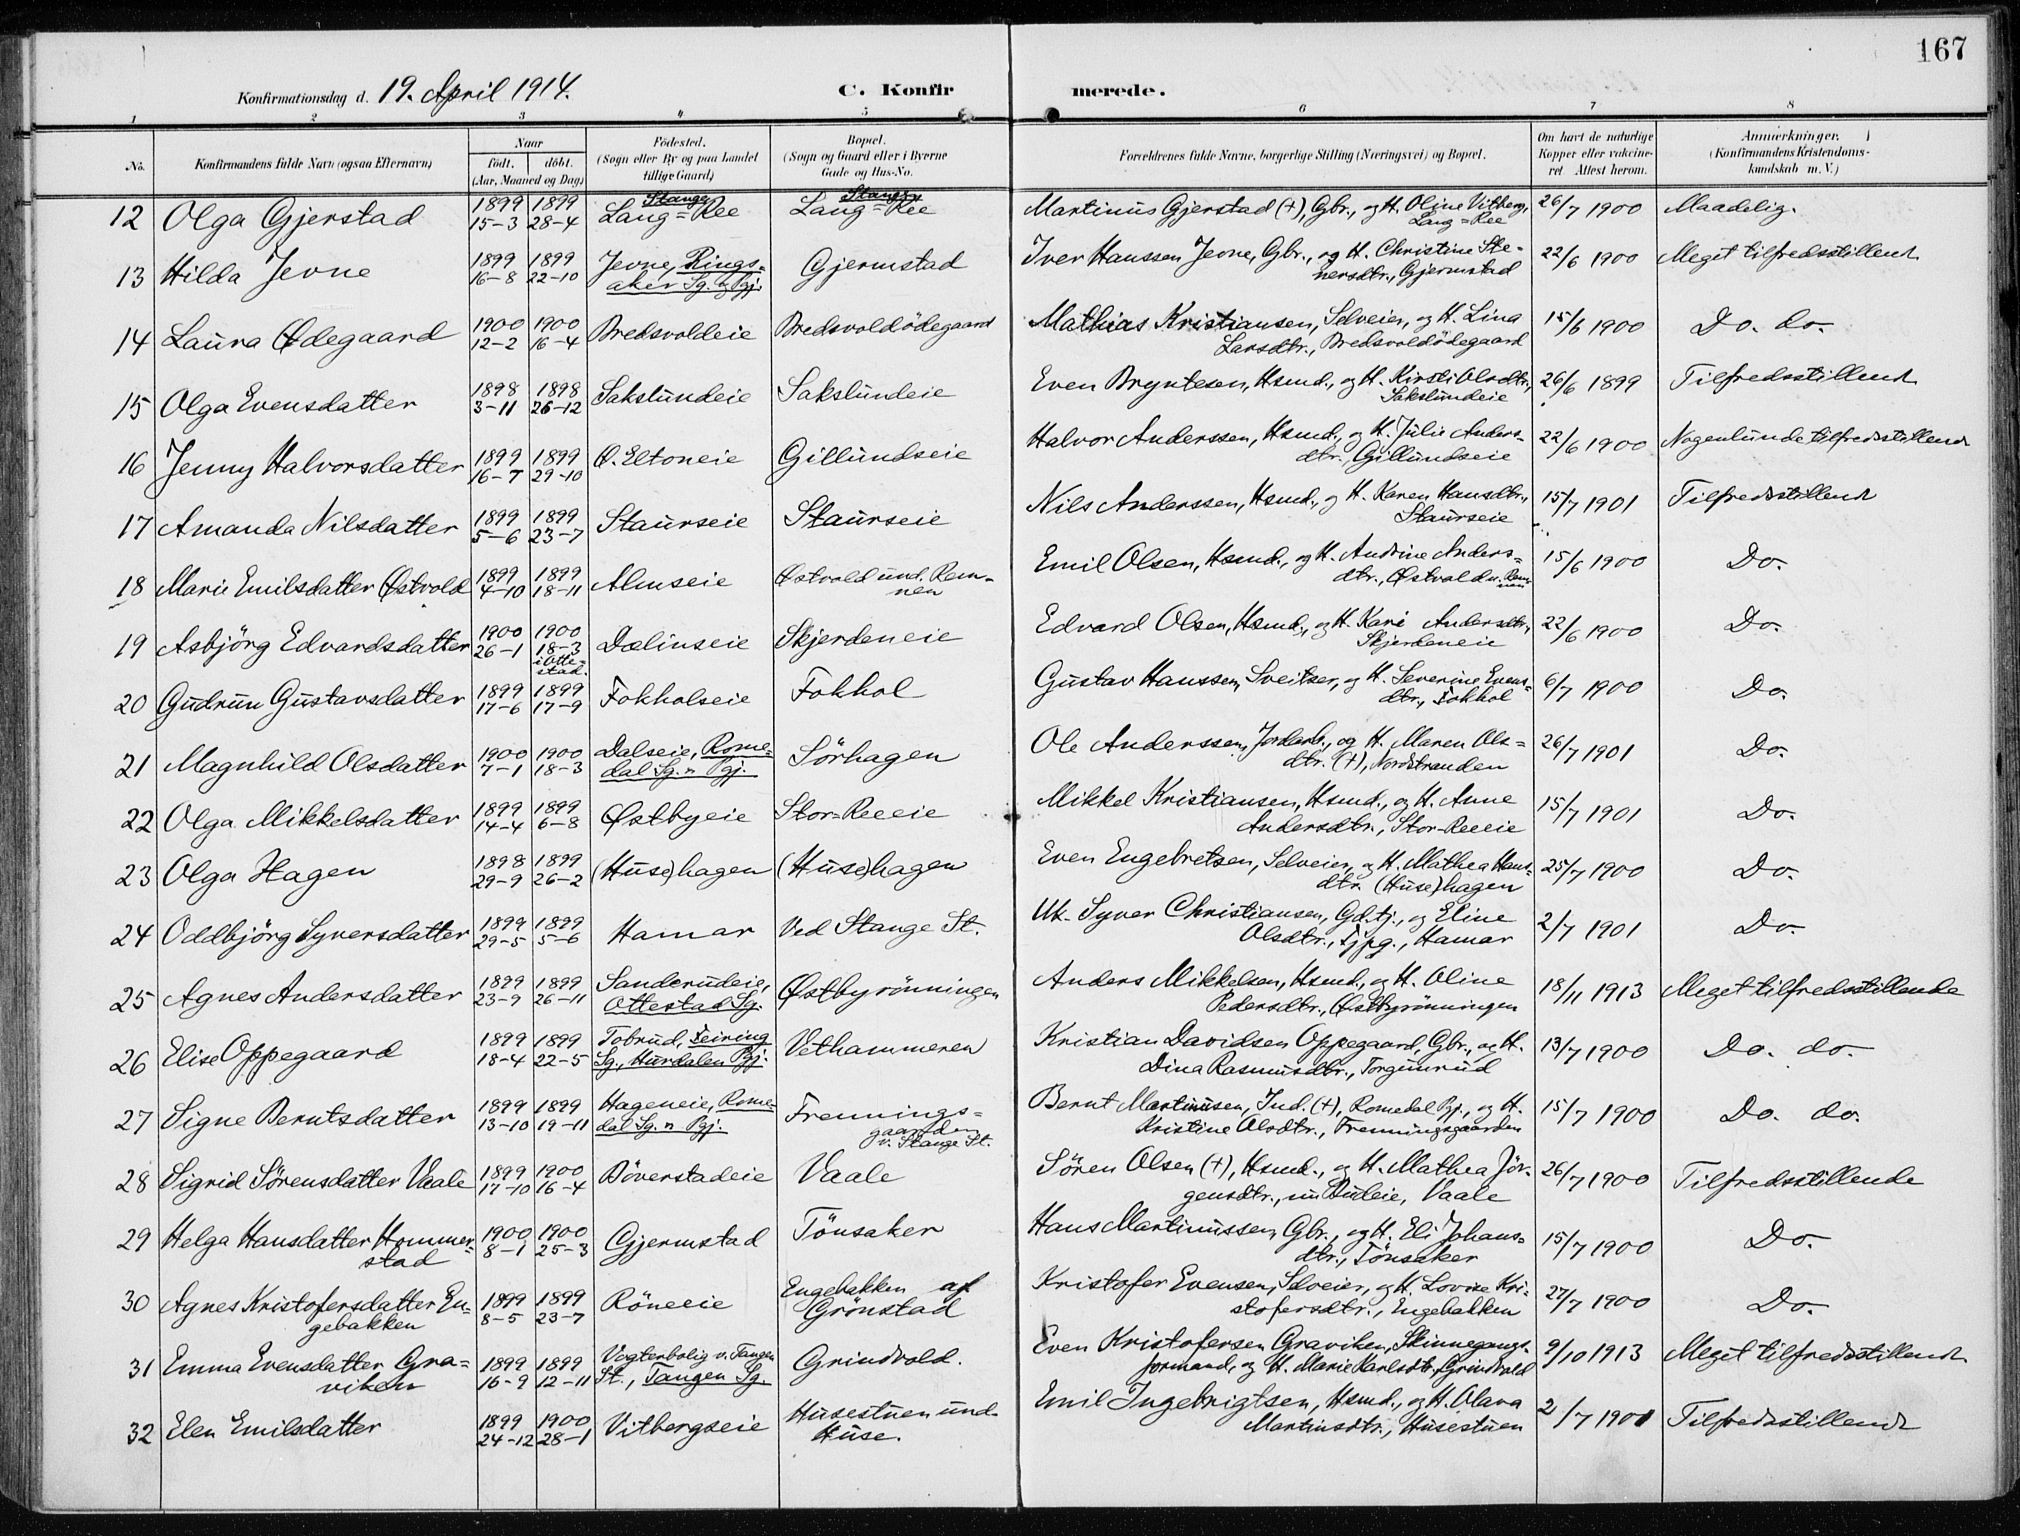 167
Konfirmationsdag d. 19. April 1914. C. Konfirmerede.
1 2 3 4 5 6 7 8
No. | Konfirmandens fulde Navn (ogsaa Efternavn) | Naar født. døbt. (Aar, Maaned og Dag) | Fødested. (Sogn eller By og paa Landet tillige Gaard) | Bopæl. (Sogn og Gaard eller i Byerne Gade og Hus-No. | Forældrenes fulde Navne, borgerlige Stilling (Næringsvei) og Bopæl. | Om havt de naturlige Kopper eller vaccineret. Attest herom. | Anmærkninger. (Konfirmandens Kristendomskundskab m. V.)
12 Olga Gjerstad 1899 15-3 1899 28-4 Lang=Ree Lang=Ree Martinus Gjerstad (+), Gbr., og H. Oline Vitberg, Lang=Ree 26/7 1900 Maadelig.
13 Hilda Jevne 1899 16-8 1899 22-10 Jevne, Ringsaker Sg. & Pgj. Gjermstad Iver Hanssen Jevne, Gbr., og H. Christine Stenersdtr., Gjermstad 22/6 1900 Meget tilfredsstillend
14 Laura Ødegaard 1900 12-2 1900 16-4 Bredsvoldeie Bredsvoldödegaard Mathias Kristiansen, Selveier, og H. Lina Larsdtr., Bredsvoldödegaard 15/6 1900 Do. do.
15 Olga Evensdatter 1898 3-11 1898 26-12 Sakslundeie Sakslundeie Even Bryntesen, Hsmd., og H. Kirsti Olsdtr., Sakslundeie 26/6 1899 Tilfredsstillend
16 Jenny Halvorsdatter 1899 16-7 1899 29-10 Ø. Eltoneie Gillundseie Halvor Anderssen, Hsmd., og H. Julie Andersdtr., Gillundseie 22/6 1900 Nogenlunde tilfredsstillend
17 Amanda Nilsdatter 1899 5-6 1899 23-7 Staurseie Staurseie Nils Anderssen, Hsmd., og H. Karen Hansdtr., Staurseie 15/7 1901 Tilfredsstillend
18 Marie Emilsdatter Østvold 1899 4-10 1899 18-11 Almseie Østvold und. Remnen Emil Olsen, Hsmd., og H. Andrine Andersdtr., Østvold u. Remnen 15/6 1900 Do.
19 Asbjörg Edvardsdatter 1900 26-1 1900 18-3 i Ottestad. Dælinseie Skjerdeneie Edvard Olsen, Hsmd., og H. Kari Andersdtr., Skjerdeneie 22/6 1900 Do.
20 Gudrun Gustavsdatter 1899 17-6 1899 17-9 Fokholseie Fokhol Gustav Hanssen, Sveitser, og H. Severine Evensdtr., Fokhol 6/7 1900 Do.
21 Magnhild Olsdatter 1900 7-1 1900 18-3 Dalseie, Romedal Sg. & Pgj. Sörhagen Ole Anderssen, Jordarb., og H. Maren Olsdtr. (+), Nordstranden 26/7 1901 Do.
22 Olga Mikkelsdatter 1899 14-4 1899 6-8 Østbyeie Stor-Reeeie Mikkel Kristiansen, Hsmd., og H. Anne Andersdtr., Stor-Reeeie 15/7 1901 Do.
23 Olga Hagen 1898 29-9 1899 26-2 (Huse)hagen (Huse)hagen Even Engebretsen, Selveier, og H. Mathea Hansdtr. (Huse)hagen 25/7 1900 Do.
24 Oddbjörg Syversdatter 1899 29-5 1899 5-6 Hamar Ved Stange St. Uk. Syver Christiansen, Gd.tj., og Eline Olsdtr., Tjpg., Hamar 2/7 1901 Do.
25 Agnes Andersdatter 1899 23-9 1899 26-11 Sanderudeie, Ottestad Sg. Østbyrönningen Anders Mikkelsen, Hsmd., og H. Oline Pedersdtr., Østbyrönningen 18/11 1913 Meget tilfredsstillende
26 Elise Oppegaard 1899 18-4 1899 22-5 Tobrud, Feiring Sg., Hurdalen Pgj. Vethammeren Kristian Davidsen Oppegaard, Gbr., og H. Dina Rasmusdtr., Torgunrud 13/7 1900 Do. do.
27 Signe Berntsdatter 1899 13-10 1899 19-11 Hageneie, Romedal Sg. & Pgj. Frenningsgaarden v. Stange St. Bernt Martinusen, Ind. (+), Romedal Pgj., og H. Kristine Olsdtr., Frenningsgaarden 15/7 1900 Do. do.
28 Sigrid Sörensdatter Vaale 1899 17-10 1900 16-4 Böverstadeie Vaale Sören Olsen (+), Hsmd., og H. Mathea Jörgensdtr., nu Buleie, Vaale 26/7 1900 Tilfredsstillende
29 Helga Hansdatter Hommerstad 1900 8-1 1900 25-3 Gjermstad Tönsaker Hans Martinussen, Gbr., og H. Eli Johansdtr., Tönsaker 15/7 1900 Do.
30 Agnes Kristofersdatter Engebakken 1899 8-5 1899 23-7 Röneeie Engebakken af Grönstad Kristofer Evensen, Selveier, og H. Lovise Kristofersdtr., Engebakken 27/7 1900 Do.
31 Emma Evensdatter Graviken 1899 16-9 1899 12-11 Vogterbolig v. Tangen St., Tangen Sg. Grindvold. Even Kristofersen Graviken, Skinnegangsformand, og H. Marie Karlsdtr., Grindvold 9/10 1913 Meget tilfredsstillend
32 Elen Emilsdatter 1899 24-12 1900 28-1 Vitbergseie Husestuen und. Huse. Emil Ingebrigtsen, Hsmd., og H. Olava Martinsdtr., Husestuen 2/7 1901 Tilfredsstillend